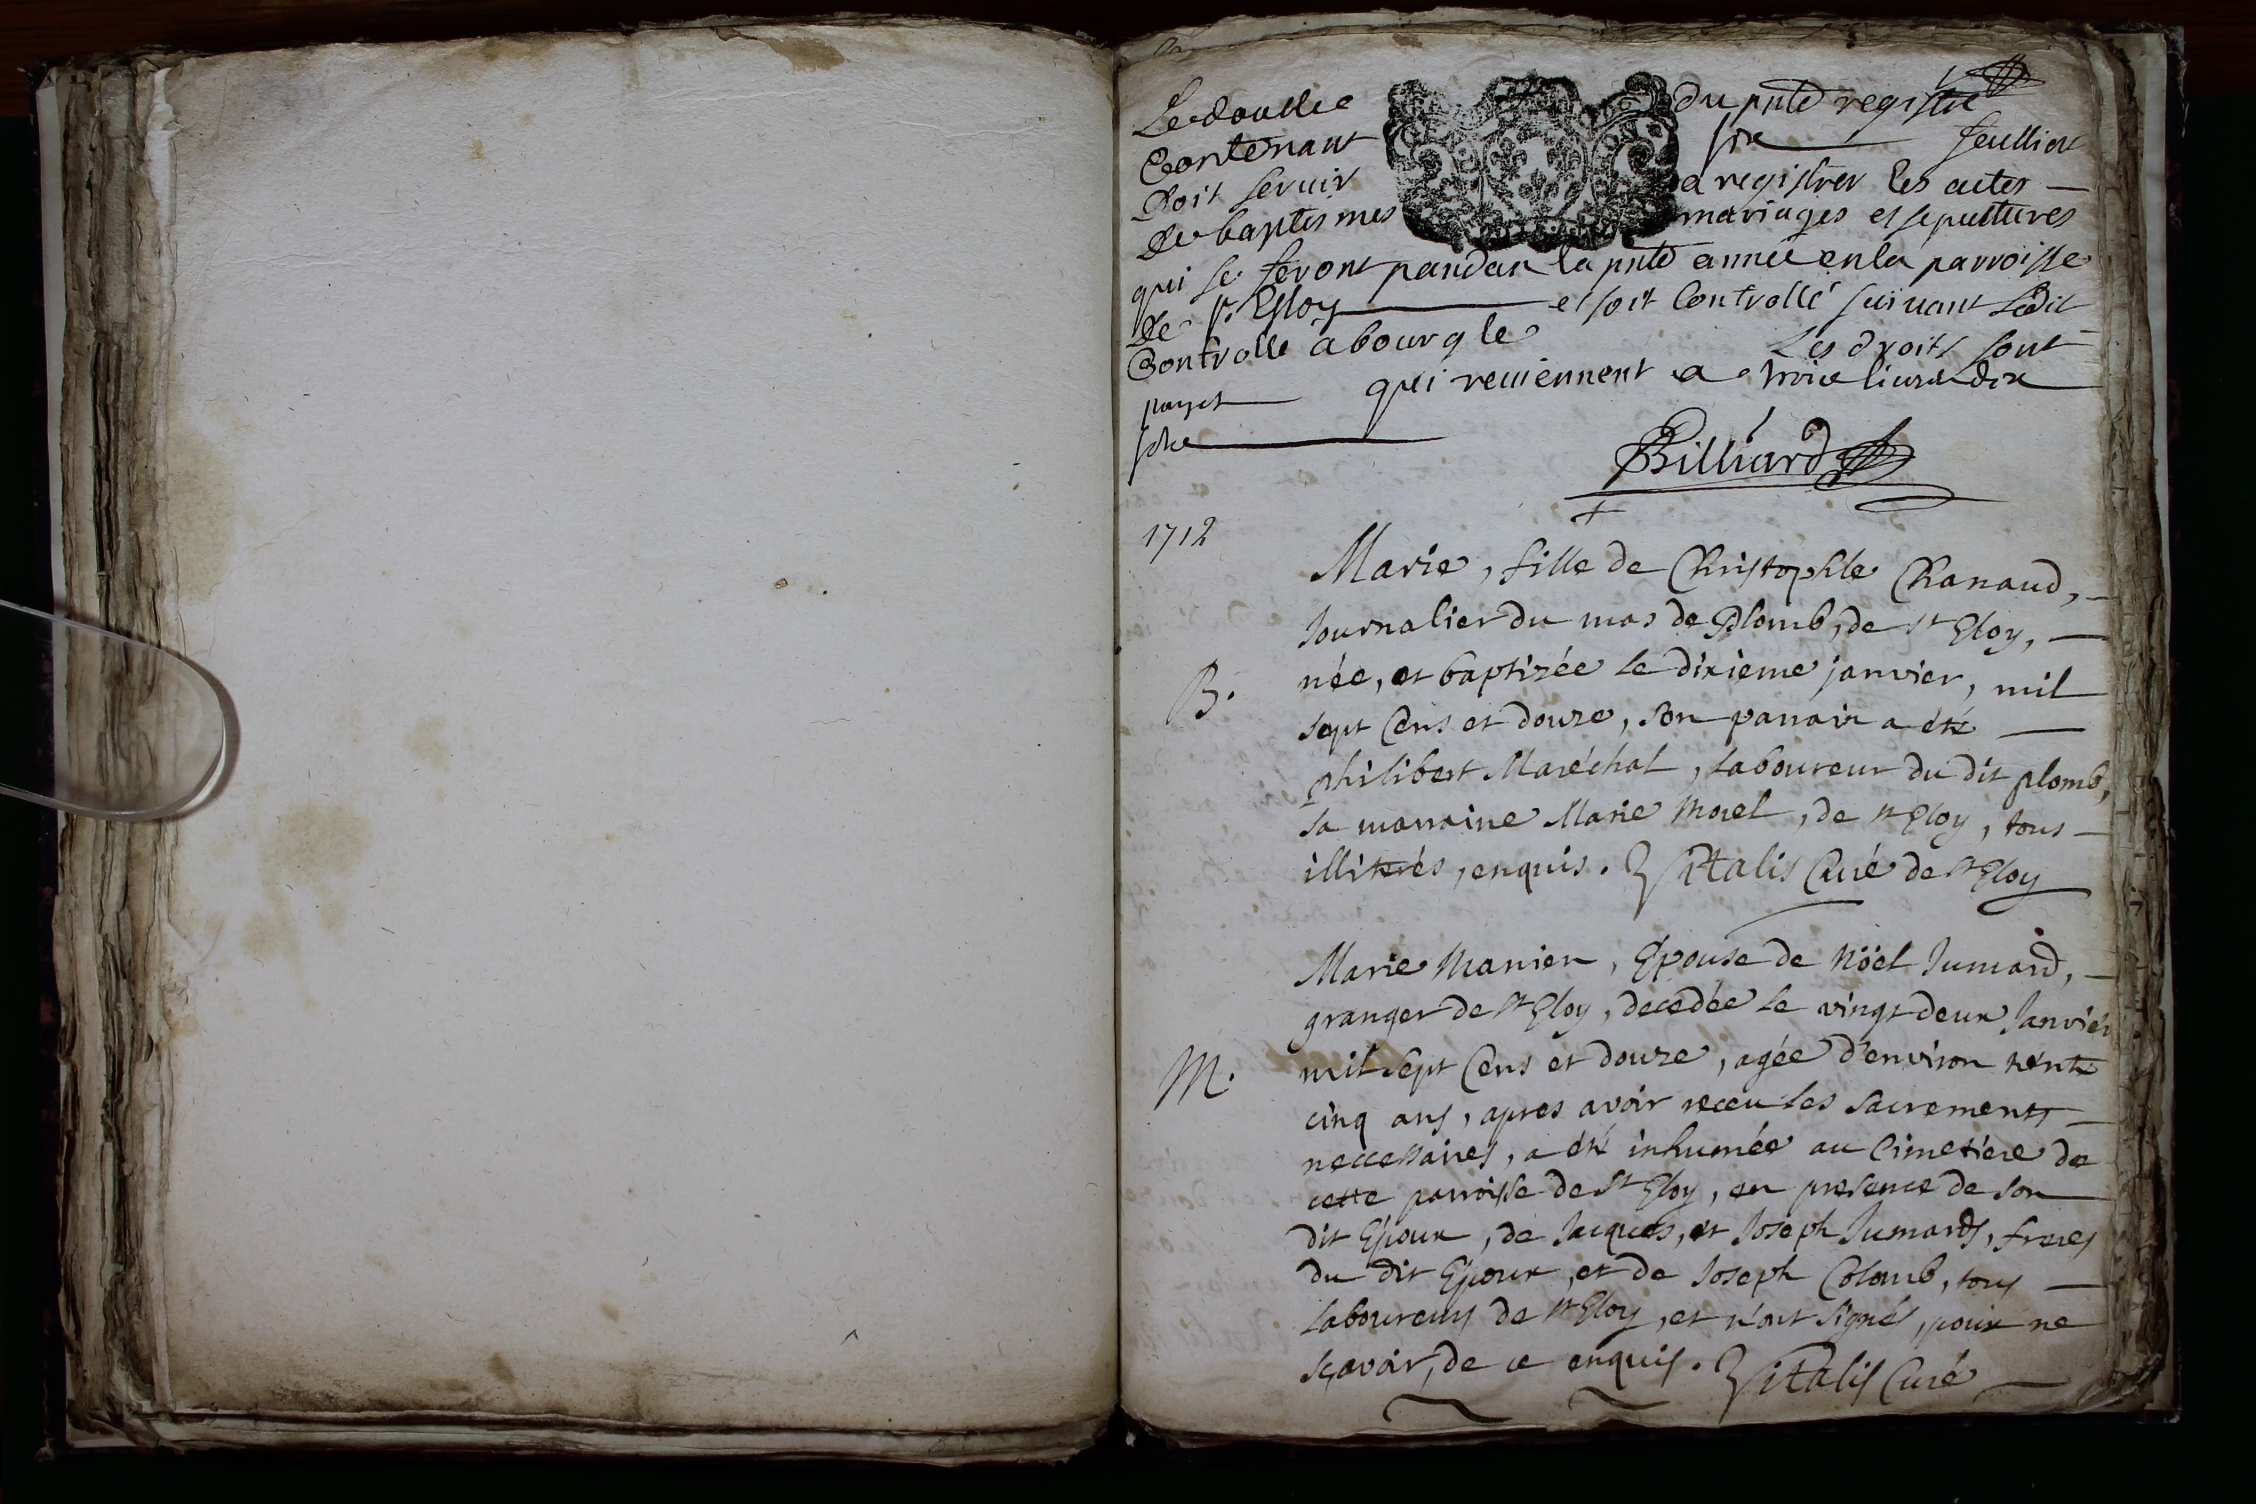 Le double du pnte registre
Contenant six feulliet
Doit servir a registrer les actes
De baptesmes mariages et sepultures
qui se feront pandan la pnte année en la parroisse
De st Esloy et soit Controllé suivant Ledit
Controlle a bourg le Les droits sont
payes qui reviennent a trois livre dix
solz
Billiard
1712
Marie, fille de Christophle Chanaud,
Journalier du mas de Plomb, de st Eloy,
B. née, et baptizée le dixieme janvier, mil
sept Cens et douze, son parrain a été
philibert Maréchal, laboureur du dit plomb,
sa marraine Marie Morel, de st Eloy, tous
illiterés, enquis. Vitalis Curé de st Eloy
Marie Manier, Epouse de Nöel Jumard,
granger de st Eloy, decedée le vingt deux Janvier
M. mil sept Cens et douze, agée d'environ trente
cinq ans, apres avoir receu les sacrements
neccessaires, a été inhumée au Cimetiere de
cette parroisse de st Eloy, en presence de son
dit Epoux, de Jacques, et Joseph Jumards, freres
du dit Epoux, et de Joseph Colomb, tous
laboureurs de st Eloy, et n'ont signés, pour ne
sçavoir, de ce enquis. Vitalis Curé